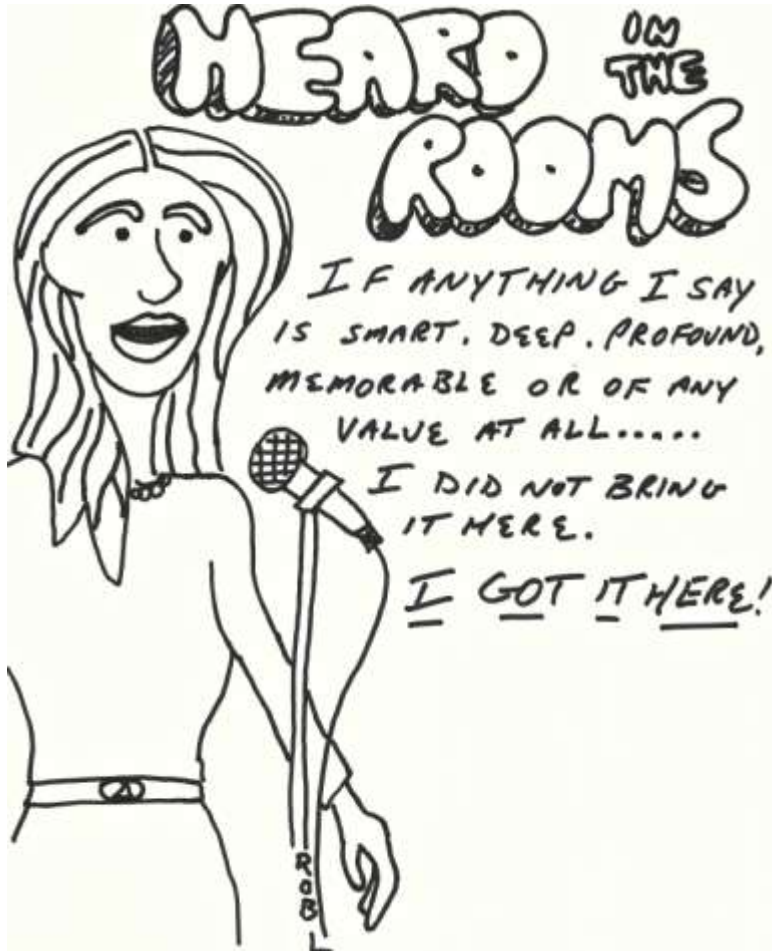 HEARD IN
THE
ROOMS
IF ANYTHING I SAY
IS SMART. DEEP. PROFOUND,
MEMORABLE OR OF ANY
VALUE AT ALL.....
I DID NOT BRING
IT HERE.
I GOT IT HERE!
ROB L